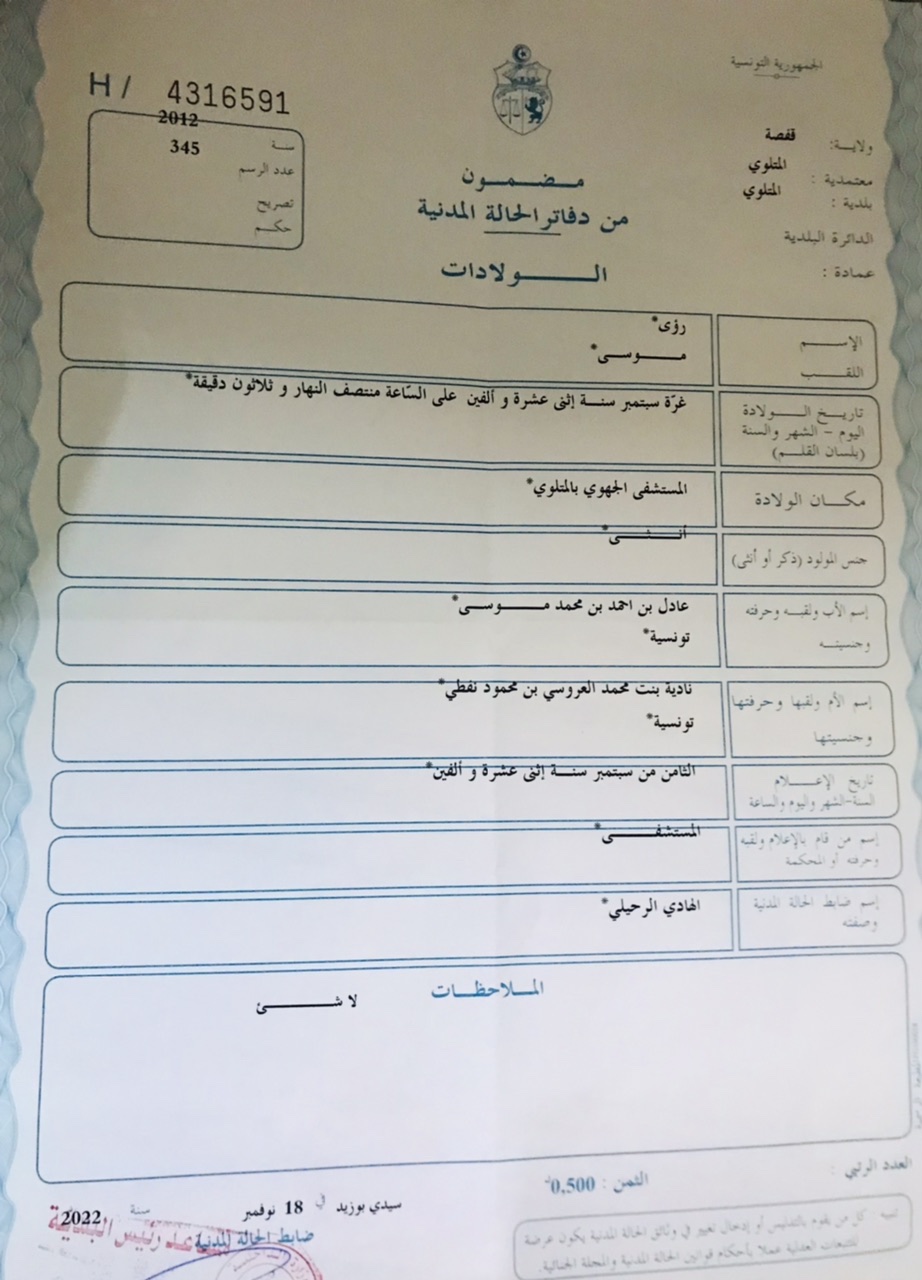 الجمهورية التونسية
H / 4316591
سنة 2012
عدد الرسم 345
تصريح
حكم
ولاية: قفصة
معتمدية : المتلوي
بلدية : المتلوي
الدائرة البلدية
عمادة :
مضمون
من دفاتر الحالة المدنية
الولادات
الإسم رؤى*
اللقب موسى*
تاريخ الولادة غرّة سبتمبر سنة إثنى عشرة و ألفين على السّاعة منتصف النهار و ثلاثون دقيقة*
اليوم - الشهر والسنة
(بلسان القلم)
مكان الولادة المستشفى الجهوي بالمتلوي*
جنس المولود (ذكر أو أنثى) أنثى*
إسم الأب ولقبه وحرفته عادل بن احمد بن محمد موسى*
وجنسيته تونسية*
إسم الأم ولقبها وحرفتها نادية بنت محمد العروسي بن محمود نفطي*
وجنسيتها تونسية*
تاريخ الإعلام الثامن من سبتمبر سنة إثنى عشرة و ألفين*
السنة-الشهر واليوم والساعة
إسم من قام بالإعلام ولقبه المستشفى*
وحرفته أو المحكمة
إسم ضابط الحالة المدنية الهادي الرحيلي*
وصفته
الملاحظات
لا شئ
العدد الرتبي :
الثمن : 0,500د
سيدي بوزيد في 18 نوفمبر سنة 2022
ضابط الحالة المدنية
رئيس البلدية
تنبيه : كل من يقوم بالتدليس أو إدخال تغيير في وثائق الحالة المدنية يكون عرضة
للتتبعات العدلية عملا بأحكام قوانين الحالة المدنية والمجلة الجنائية.